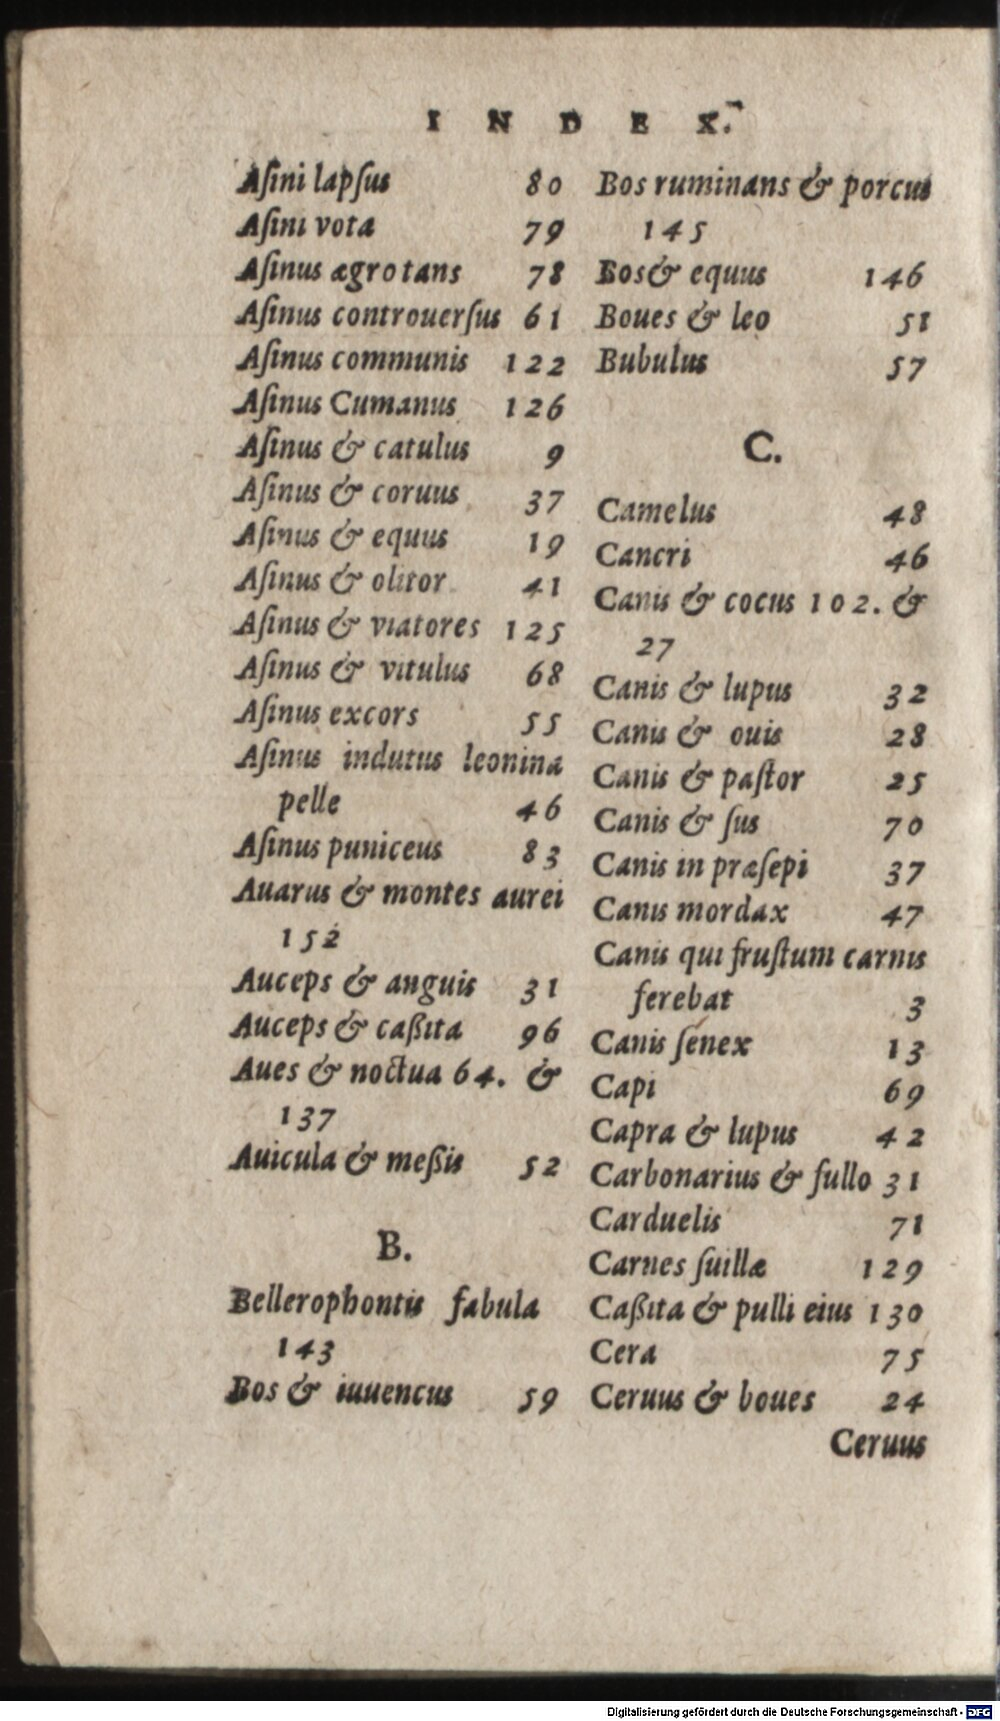 INDEX.
Aſini lapſus 80
Aſini vota 79
Aſinus ægrotans 78
Aſinus controuerſus 61
Aſinus communis 122
Aſinus Cumanus 126
Aſinus & catulus 9
Aſinus & coruus 37
Aſinus & equus 19
Aſinus & olitor 41
Aſinus & viatores 125
Aſinus & vitulus 68
Aſinus excors 55
Aſinus indutus leonina
pelle 46
Aſinus puniceus 83
Auarus & montes aurei
152
Auceps & anguis 31
Auceps & caßita 96
Aues & noctua 64. &
137
Auicula & meßis 52
B.
Bellerophontis fabula
143
Bos & iuuencus 59
Bos ruminans & porcus
145
Bos & equus 146
Boues & leo 51
Bubulus 57
C.
Camelus 48
Cancri 46
Canis & cocus 102. &
27
Canis & lupus 32
Canis & ouis 28
Canis & paſtor 25
Canis & ſus 70
Canis in præſepi 37
Canis mordax 47
Canis qui fruſtum carnis
ferebat 3
Canis ſenex 13
Capi 69
Capra & lupus 42
Carbonarius & fullo 31
Carduelis 71
Carnes ſuillæ 129
Caßita & pulli eius 130
Cera 75
Ceruus & boues 24
Ceruus
Digitalisierung gefördert durch die Deutsche Forschungsgemeinschaft - DFG